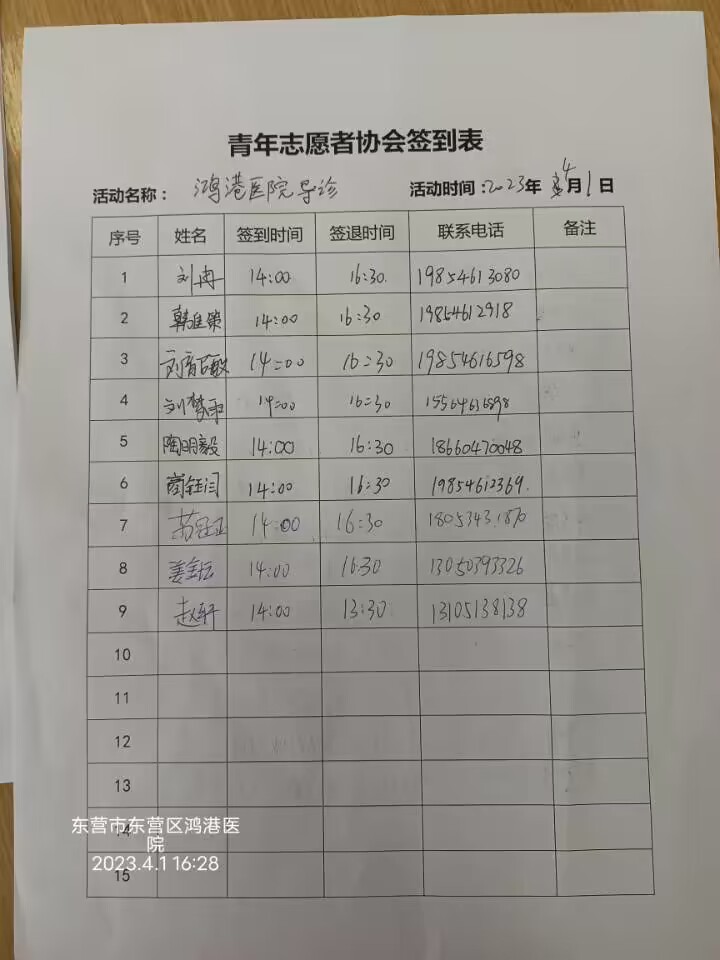 青年志愿者协会签到表
活动名称： 鸿港医院导诊 活动时间：2023年 4月1日
序号 姓名 签到时间 签退时间 联系电话 备注
1 刘冉 14:00 16:30 19854613080
2 14:00 16:30 19854612918
3 14:00 16:30 19854616598
4 刘梦雨 14:00 16:30
5 陶明毅 14:00 16:30 18660470048
6 14:00 16:30 19854612369
7 14:00 16:30 18053431870
8 14:00 16:30 13050393326
9 赵轩 14:00 13:30 13105138138
10
11
12
13
14
15
东营市东营区鸿港医
院
2023.4.1 16:28